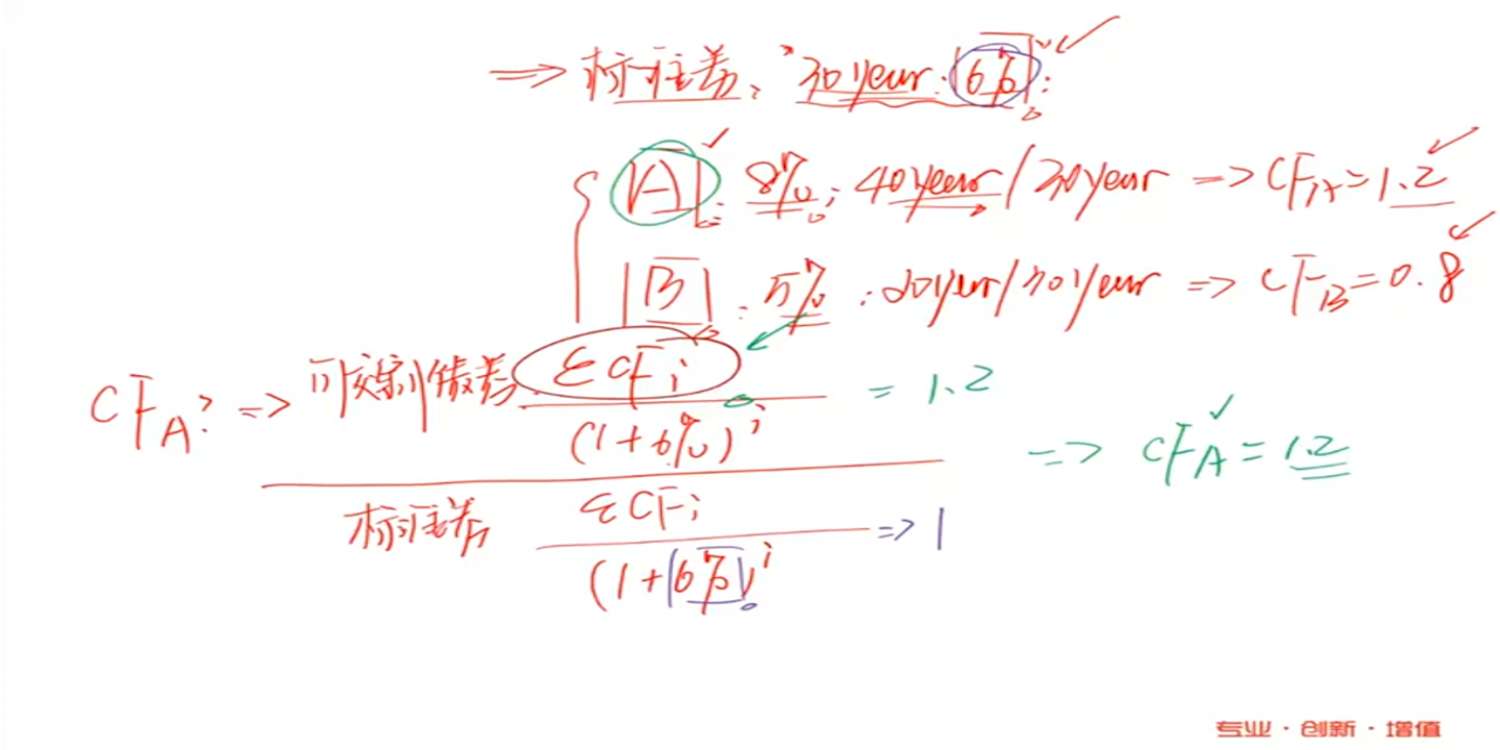 => 标准券、30year. 6%:
A: 8%; 40year/30year => CF_A=1.2
B: 5%: 20year/30year => CF_B=0.8
CF_A? => 可交割债券 ΣCFi / (1+6%)^i = 1.2
标准券 ΣCFi / (1+6%)^i => 1
=> CF_A=1.2
专业·创新·增值